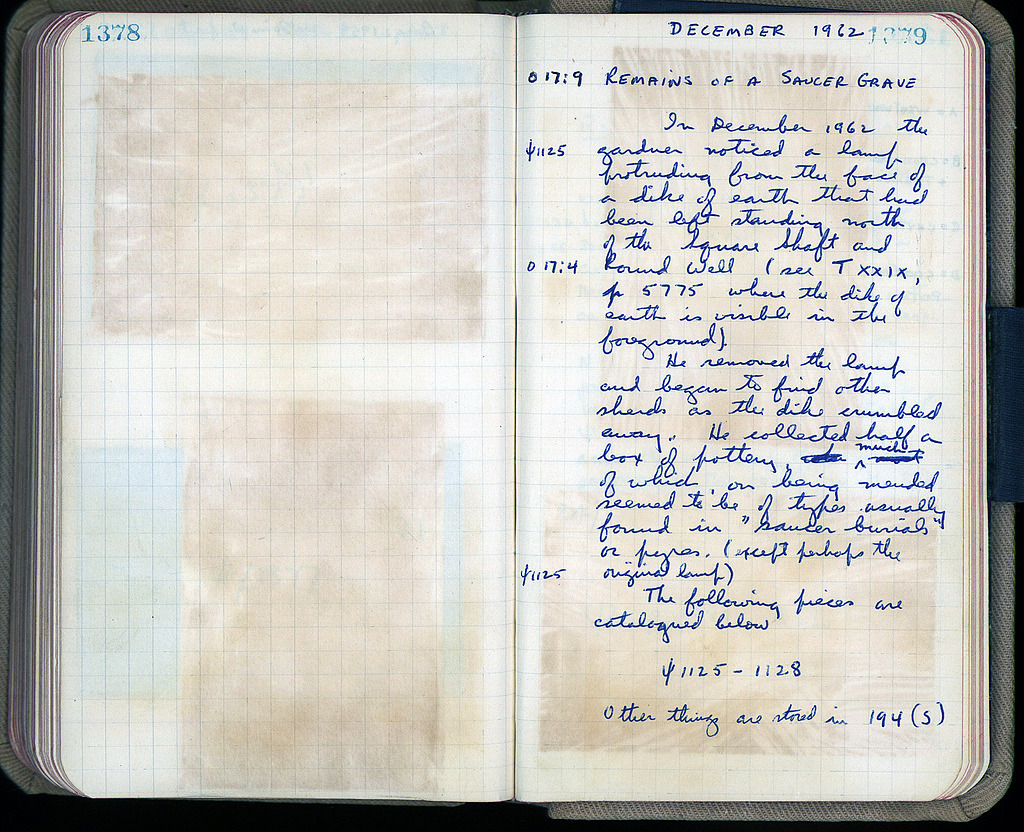 1378
DECEMBER 1962 1379
O 17:9 REMAINS OF A SAUCER GRAVE
In December 1962 the
ψ1125 gardner noticed a lamp
protruding from the face of
a dike of earth that had
been left standing north
of the Square Shaft and
O 17:4 Round Well (see T XXIX,
p 5775 where the dike of
earth is visible in the
foreground).
He removed the lamp
and began to find other
sherds as the dike crumbled
away. He collected half a
box of pottery, much
of which, on being mended
seemed to be of types usually
found in "saucer burials"
or pyres. (except perhaps the
ψ1125 original lamp)
The following pieces are
catalogued below
ψ1125 - 1128
Other things are stored in 194 (S)